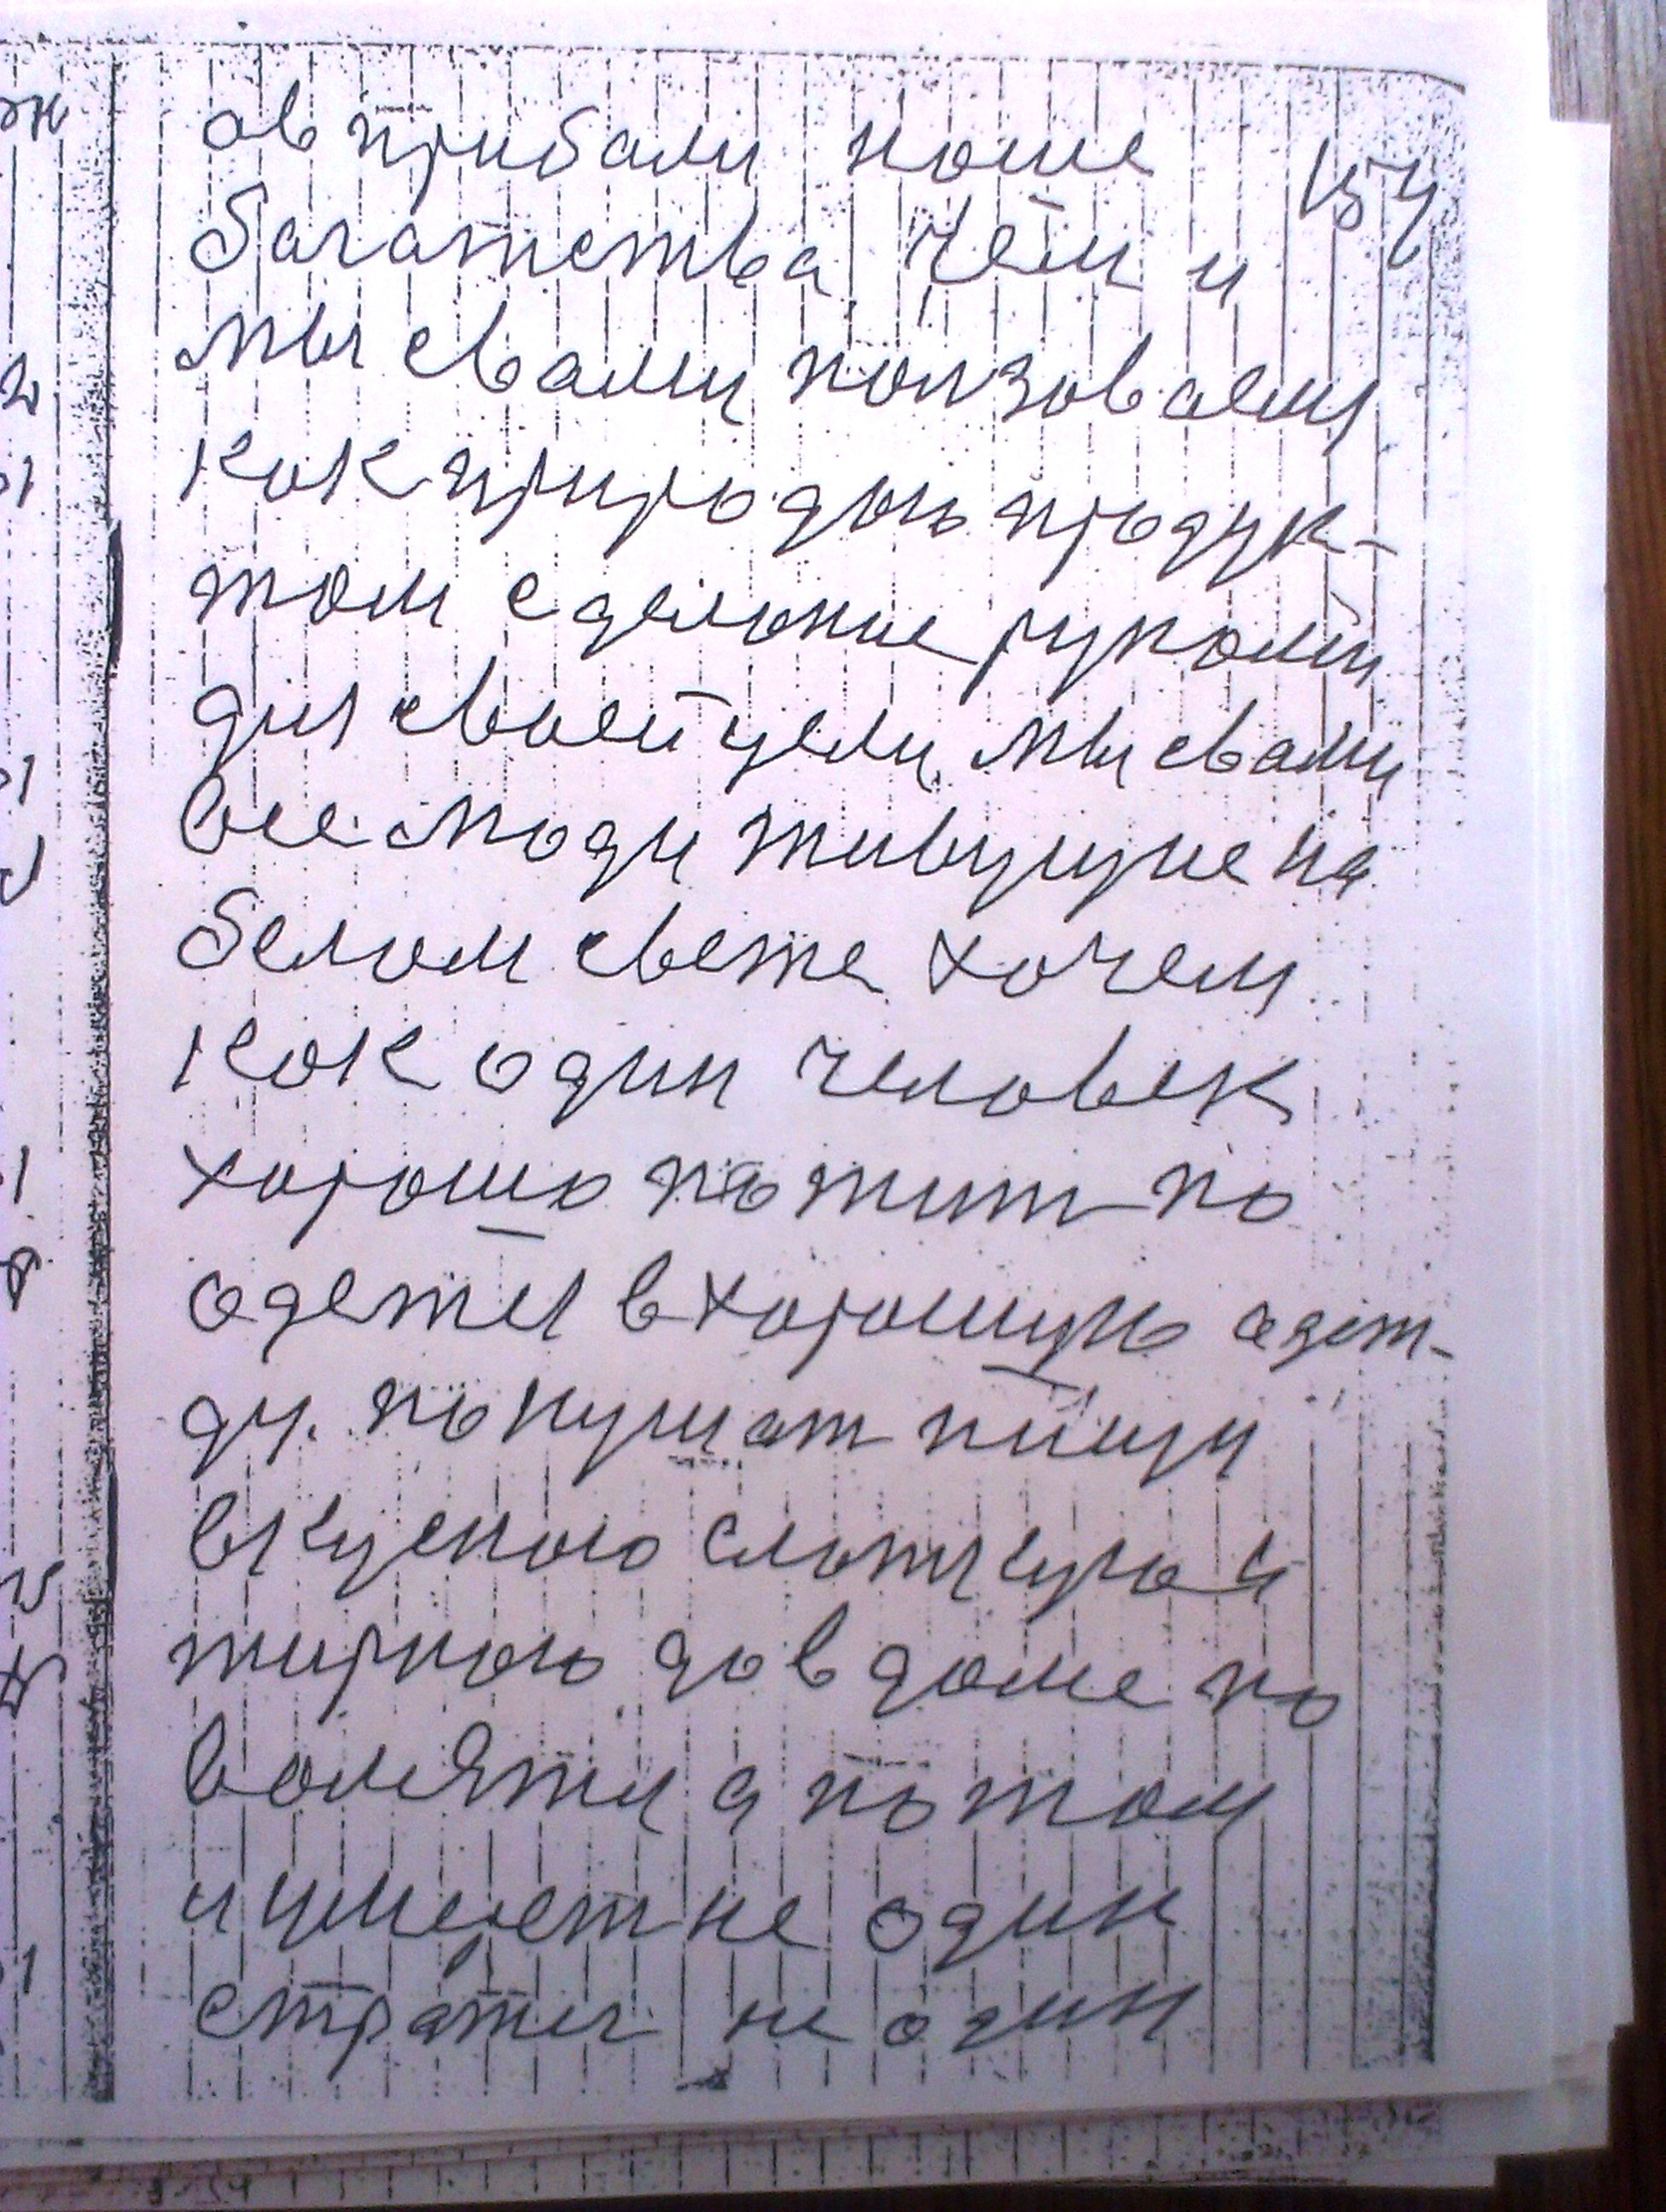 ов прибали наше 154
багатства, чем и
мы свами ползоваемя
как природою продук-
том сделаные руками
для своей цели, мы свами
все люди живущие на
белом свете хочем
как один человек
хорошо по жит по
одетя в хорошую одеж-
ду. по кушат пищу
вкусною слаткую и
жирною да в доме по
волятя а потом
и умерет не один
стратег не один